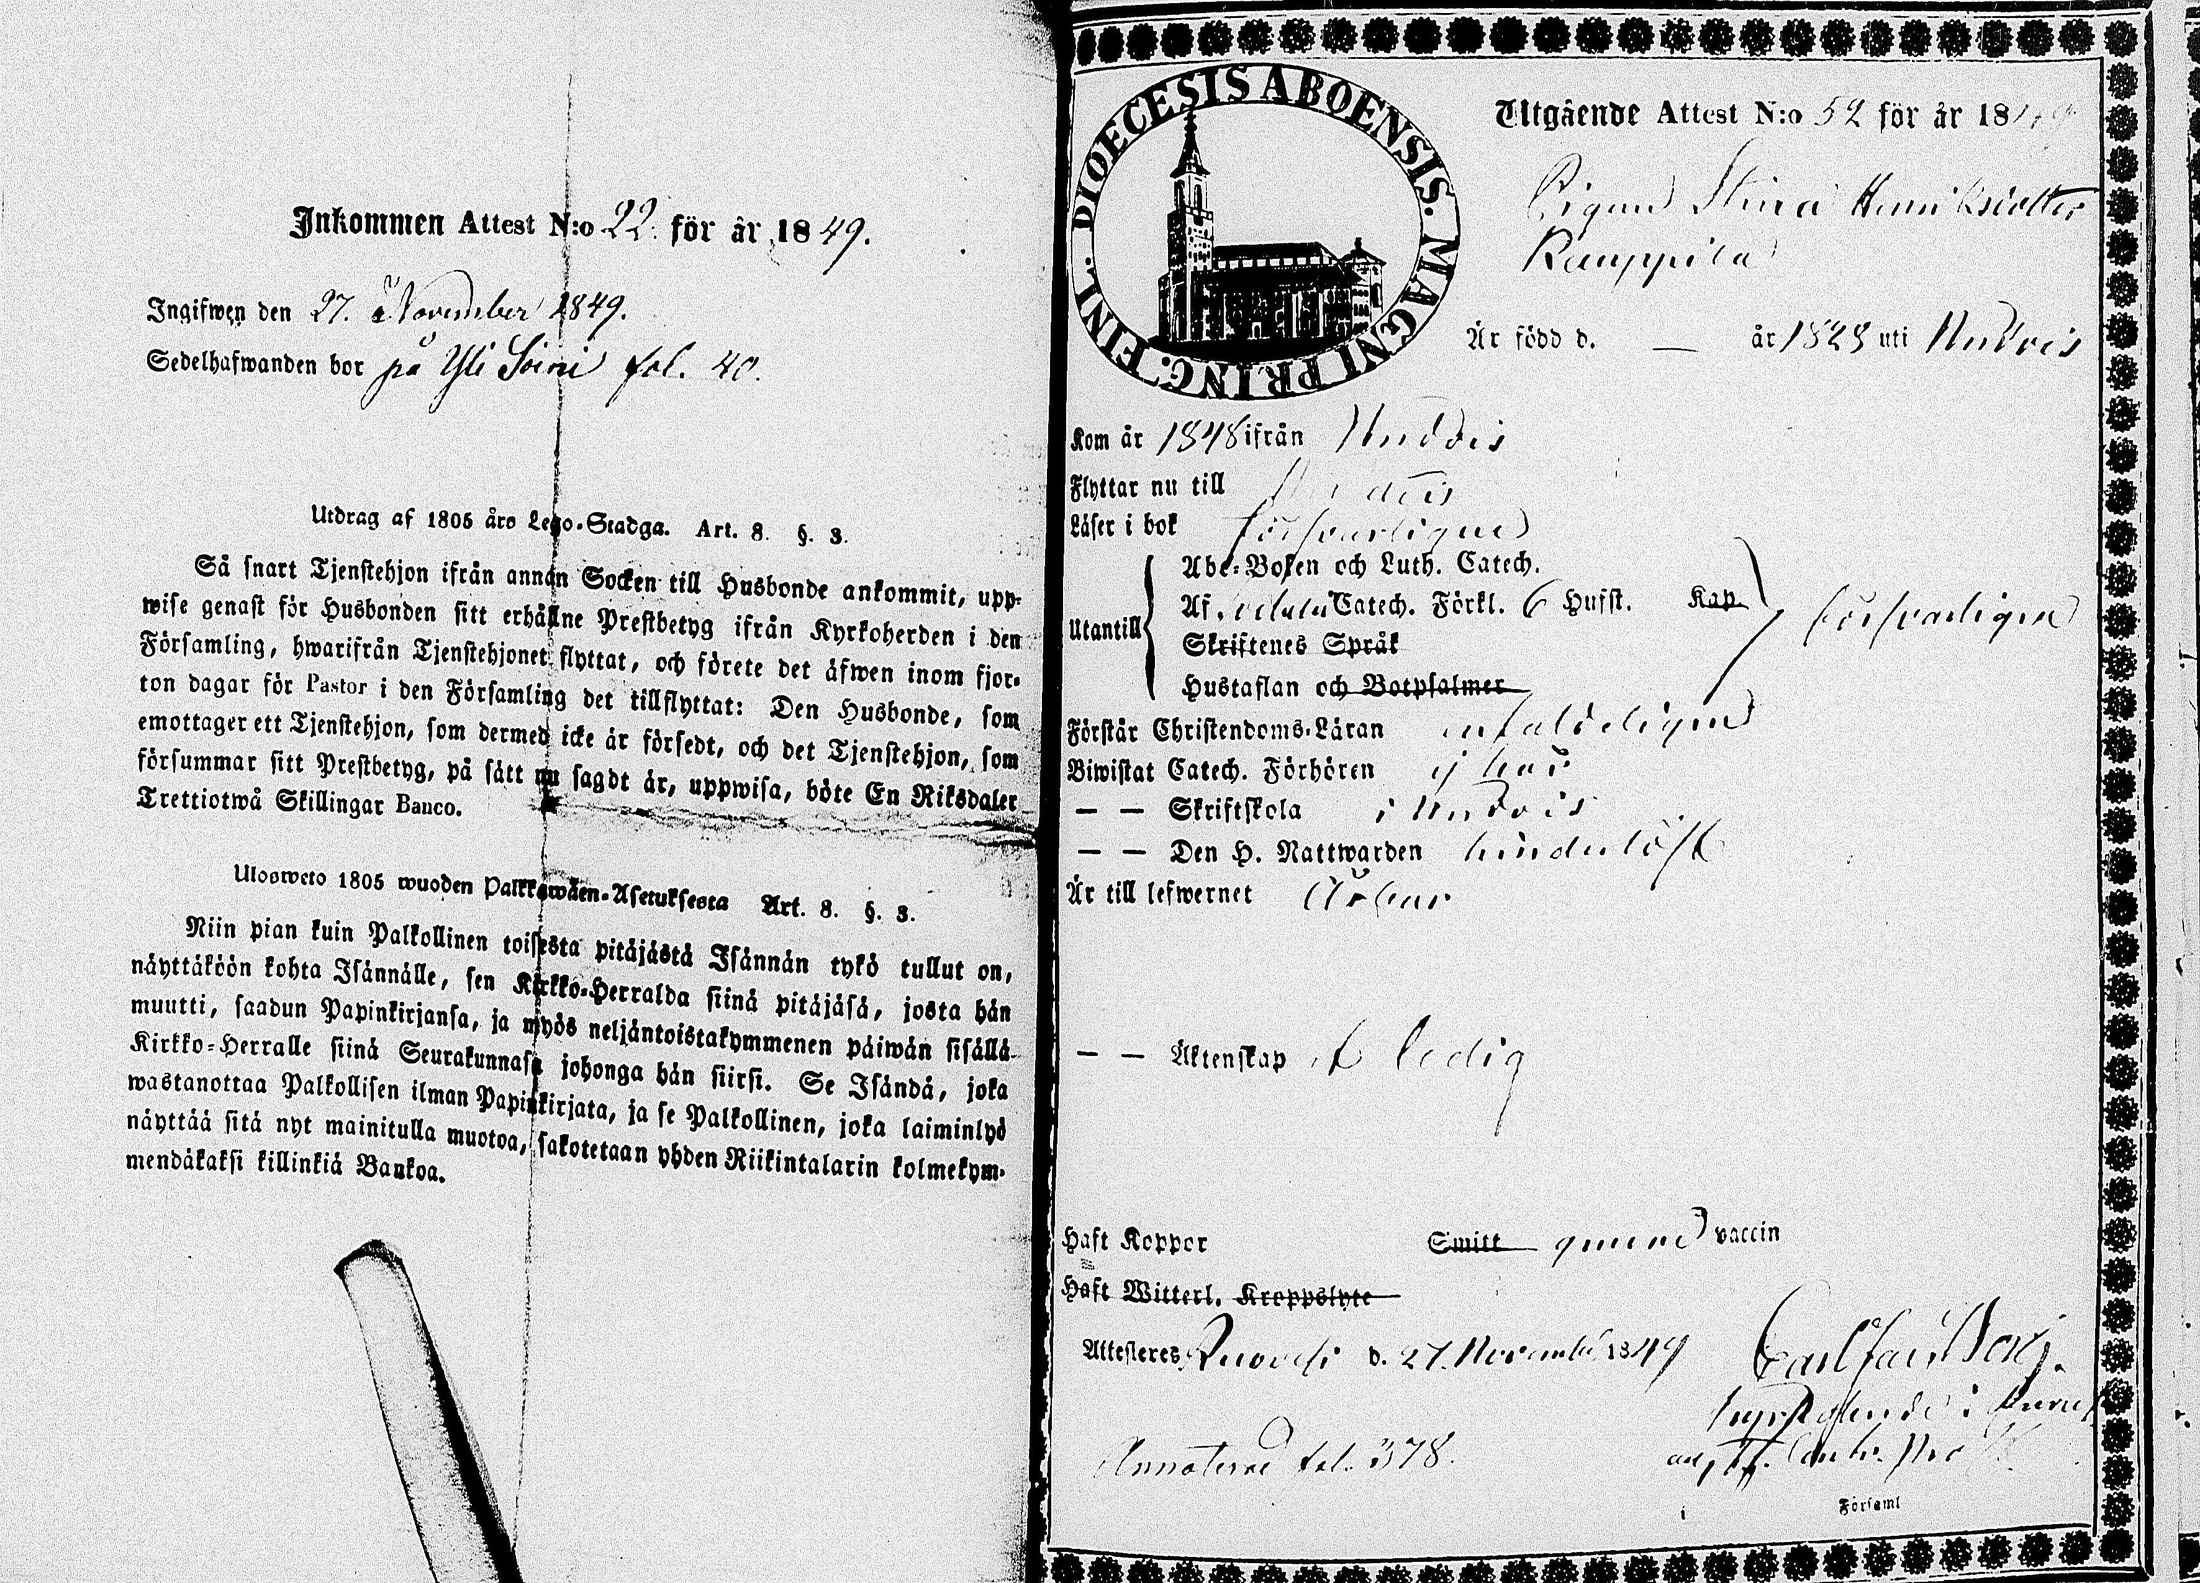 Inkommen Attest N:o 22. för år 1849.
Ingifwen den 27. November 1849.
Sedelhafwanden bor på Yli Soini fol. 40.
Utdrag af 1805 års Lego-Stadga. Art. 8. §. 3.
Så snart Tjenstehjon ifrån annan Socken till Husbonde ankommit, upp-
wise genast för Husbonden sitt erhållne Prestbetyg ifrån Kyrkoherden i den
Församling, hwarifrån Tjenstehjonet flyttat, och förete det äfwen inom fjor-
ton dagar för Pastor i den Församling det tillflyttat: Den Husbonde, som
emottager ett Tjenstehjon, som dermed icke är försedt, och det Tjenstehjon, som
försummar sitt Prestbetyg, på sätt nu sagdt är, uppwisa, böte En Riksdaler
Trettiotwå Skillingar Banco.
Ulosweto 1805 wuoden Palkkawäen-Asetuksesta Art. 8. §. 3.
Niin pian kuin Palkollinen toisesta pitäjästä Isännän tykö tullut on,
näyttäköön kohta Isännälle, sen Kirkko-Herralda siinä pitäjäsä, josta hän
muutti, saadun Papinkirjansa, ja myös neljäntoistakymmenen päiwän sisällä
Kirkko-Herralle siinä Seurakunnasa johonga hän siirsi. Se Isändä, joka
wastanottaa Palkollisen ilman Papinkirjata, ja se Palkollinen, joka laiminlyö
näyttää sitä nyt mainitulla muotoa, sakotetaan yhden Riikintalarin kolmekym-
mendäkaksi killinkiä Bankoa.
DIOECESIS ABOENSIS. MAGNI PRINC. FINL.
Utgående Attest N:o 52 för år 1849
Pigan Stina Henriksdotter
Kauppila
Är född d. — år 1828 uti
Kom år 1848 ifrån
Flyttar nu till
Läser i bok försvarligen
Abc-Boken och Luth. Catech.
Utantill Af Catech. Förkl. 6 Hufst. Kap försvarligen
Skriftenes Språk
Hustaflan och Botpsalmer
Förstår Christendoms-Läran enfaldeligen
Biwistat Catech. Förhören
— — Skriftskola i
— — Den H. Nattwarden
Är till lefwernet Ärbar
— — Äktenskap ledig
Haft Koppor Smitt genom vaccin
Haft Witterl. Kroppslyte
Attesteres d. 27. November 1849
i
Annoterad fol. 378.
Församl